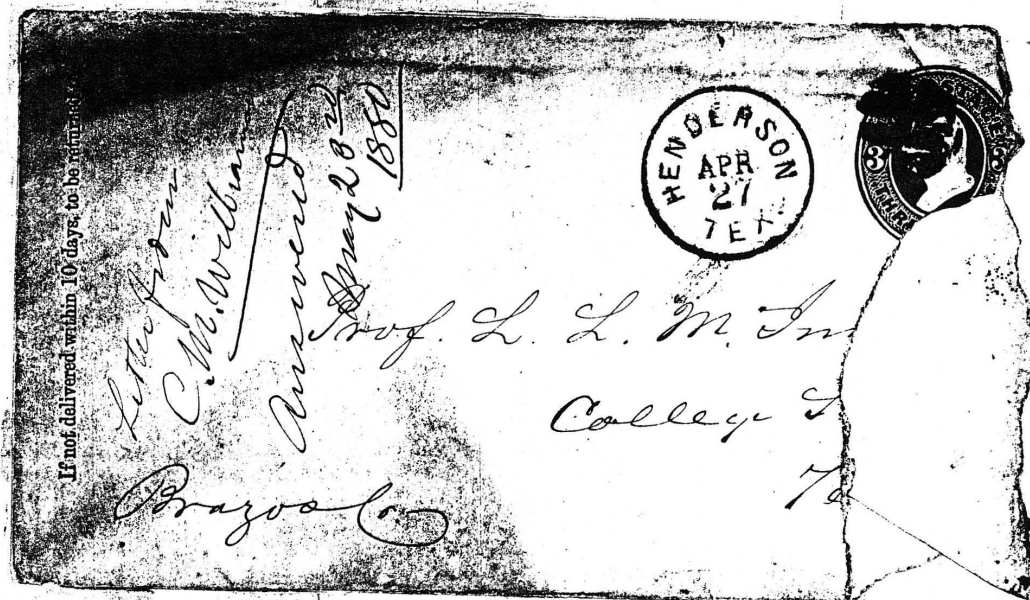 If not delivered within 10 days, to be returned
Letter from
C. M. Wilbran
Answered
May 23rd
1880
HENDERSON
APR
27
TEX.
3
3
Prof. L. L. M.
College
Te
Brazos Co.